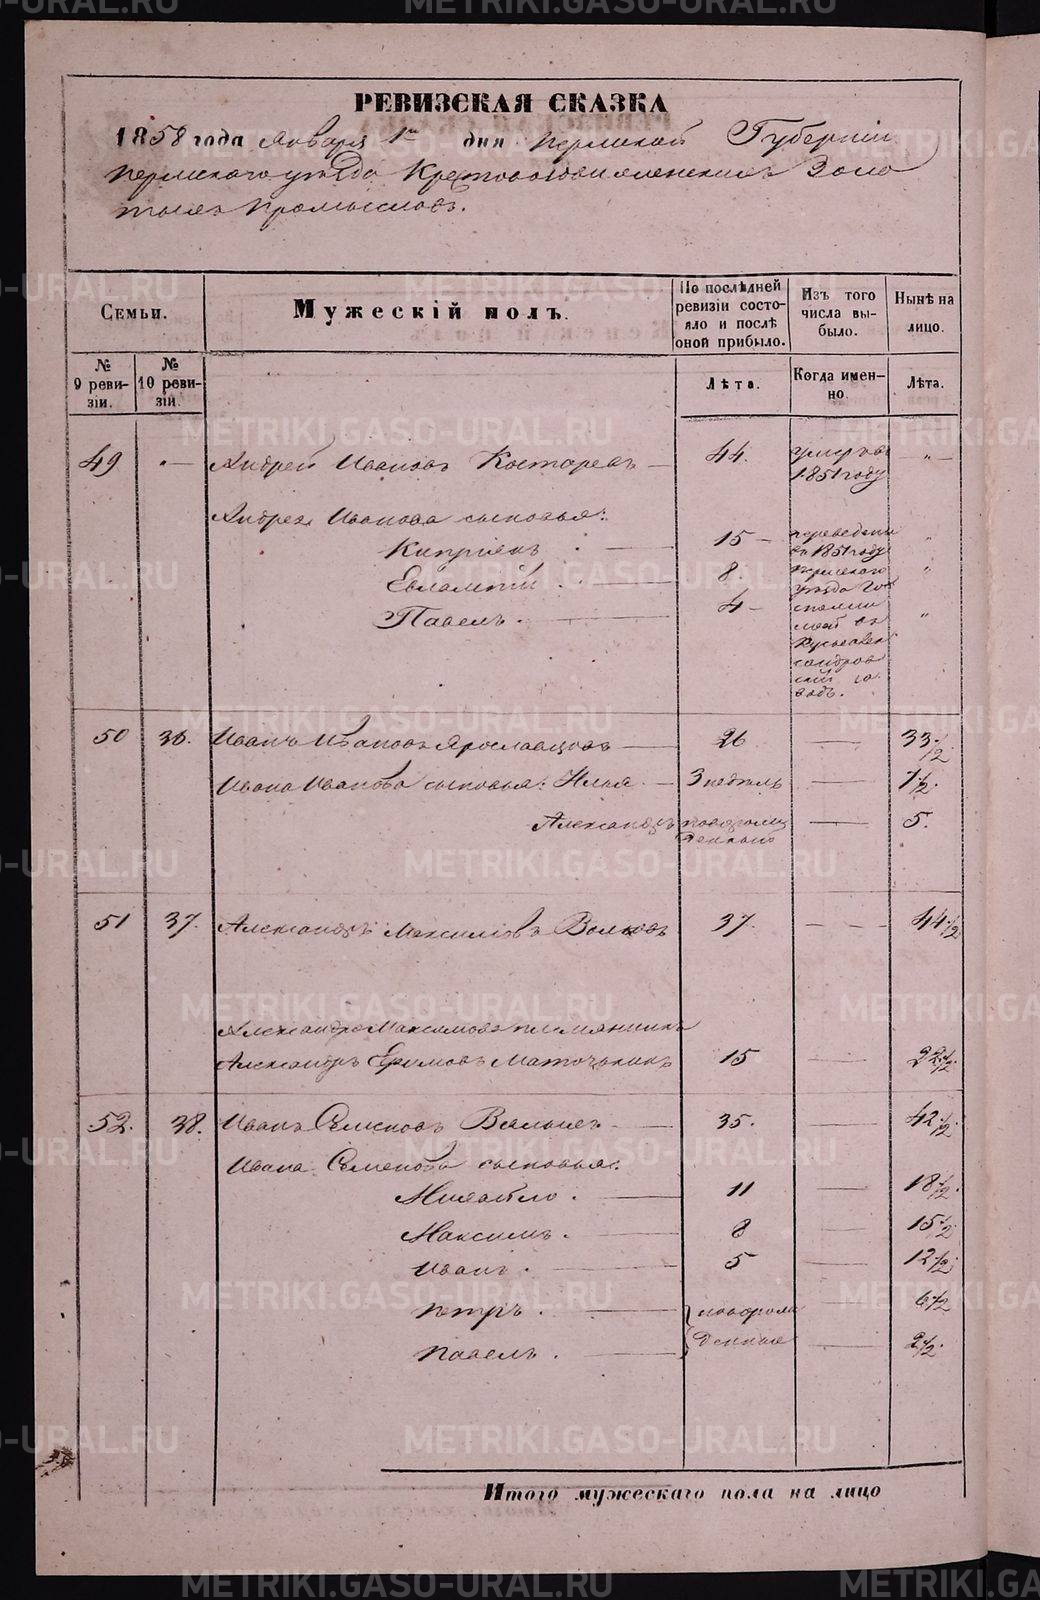 РЕВИЗСКАЯ СКАЗКА
1858 года Января 1го дня Пермской Губернiи
Пермскаго уѣзда Крестовоздвиженскихъ Золо
тыхъ Промысловъ.
Семьи.
Мужескiй полъ.
По послѣдней ревизiи состояло и послѣ оной прибыло.
Изъ того числа выбыло.
Нынѣ на лицо.
№ 9 ревизiи.
№ 10 ревизiи.
Лѣта.
Когда именно.
Лѣта.
49 — Андрей Ивановъ Костаревъ — 44. умеръ въ 1851 году „
Андрея Иванова сыновья:
Кипрiянъ 15 — переведены въ 1851 году „
Евлампiй 8. Пермскаго уѣзда „
Павелъ 4 — „
50 36. Иванъ Ивановъ Ярославцовъ — 26 — 33½
Ивана Иванова сыновья: Илья — 3 недѣль — 7½
Александръ новорожденной — 5.
51 37. Александръ Максимовъ Волковъ 37. — 44½
Александра Максимова племянникъ
Александръ Ефимовъ Маточкинъ 15 — 22½
52. 38. Иванъ Семеновъ — 35. — 42½
Ивана Семенова сыновья:
Михайло. — 11 — 18½
Максимъ. — 8 — 15½
Иванъ. — 5 — 12½
Петръ. — новорож — 6½
Павелъ. — денные — 2½
Итого мужескаго пола на лицо
METRIKI.GASO-URAL.RU